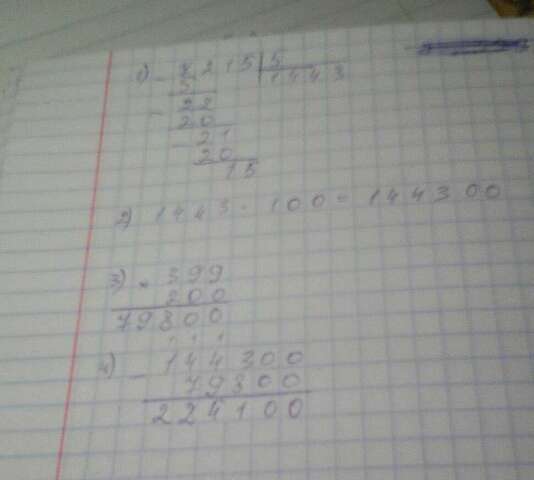 1) - 7215 | 5
5 1443
22
- 20
21
- 20
15
2) 1443 · 100 = 144300
3) × 399
200
79800
4) - 144300
79800
224100